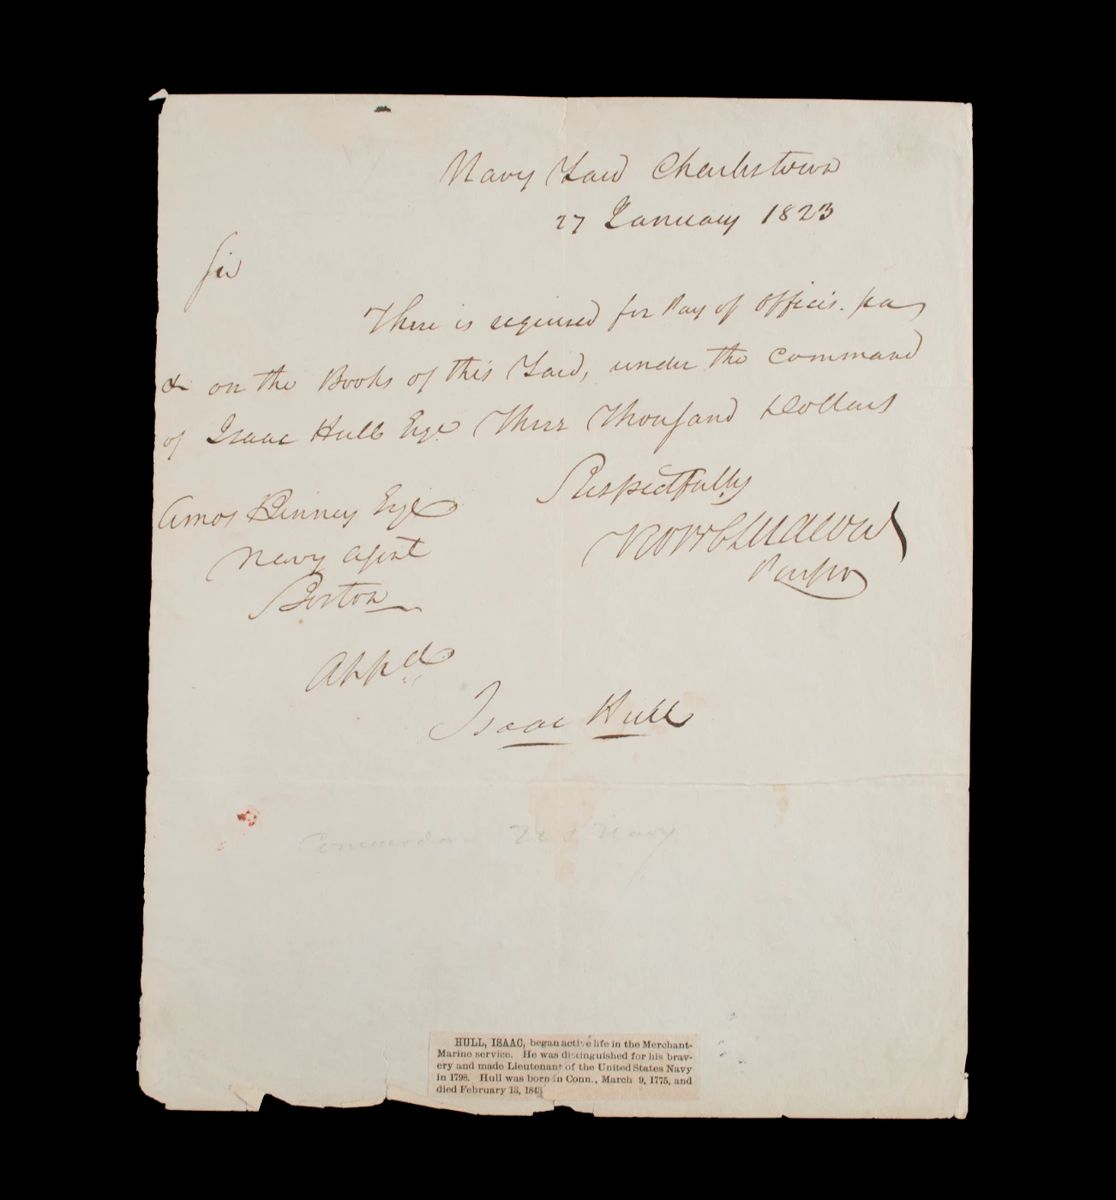 Navy Yard Charlestown
27 January 1823
Sir
There is required for Pay of Officers. &c
&c on the Books of this Yard, under the command
of Isaac Hull Esqr Three Thousand Dollars
Respectfully
Amos Binney Esqr
Navy Agent
Boston
Purser
Appd.
Isaac Hull
Commodore U S Navy
HULL, ISAAC, began active life in the Merchant-
Marine service. He was distinguished for his brav-
ery and made Lieutenant of the United States Navy
in 1798. Hull was born in Conn., March 9, 1775, and
died February 13, 1843